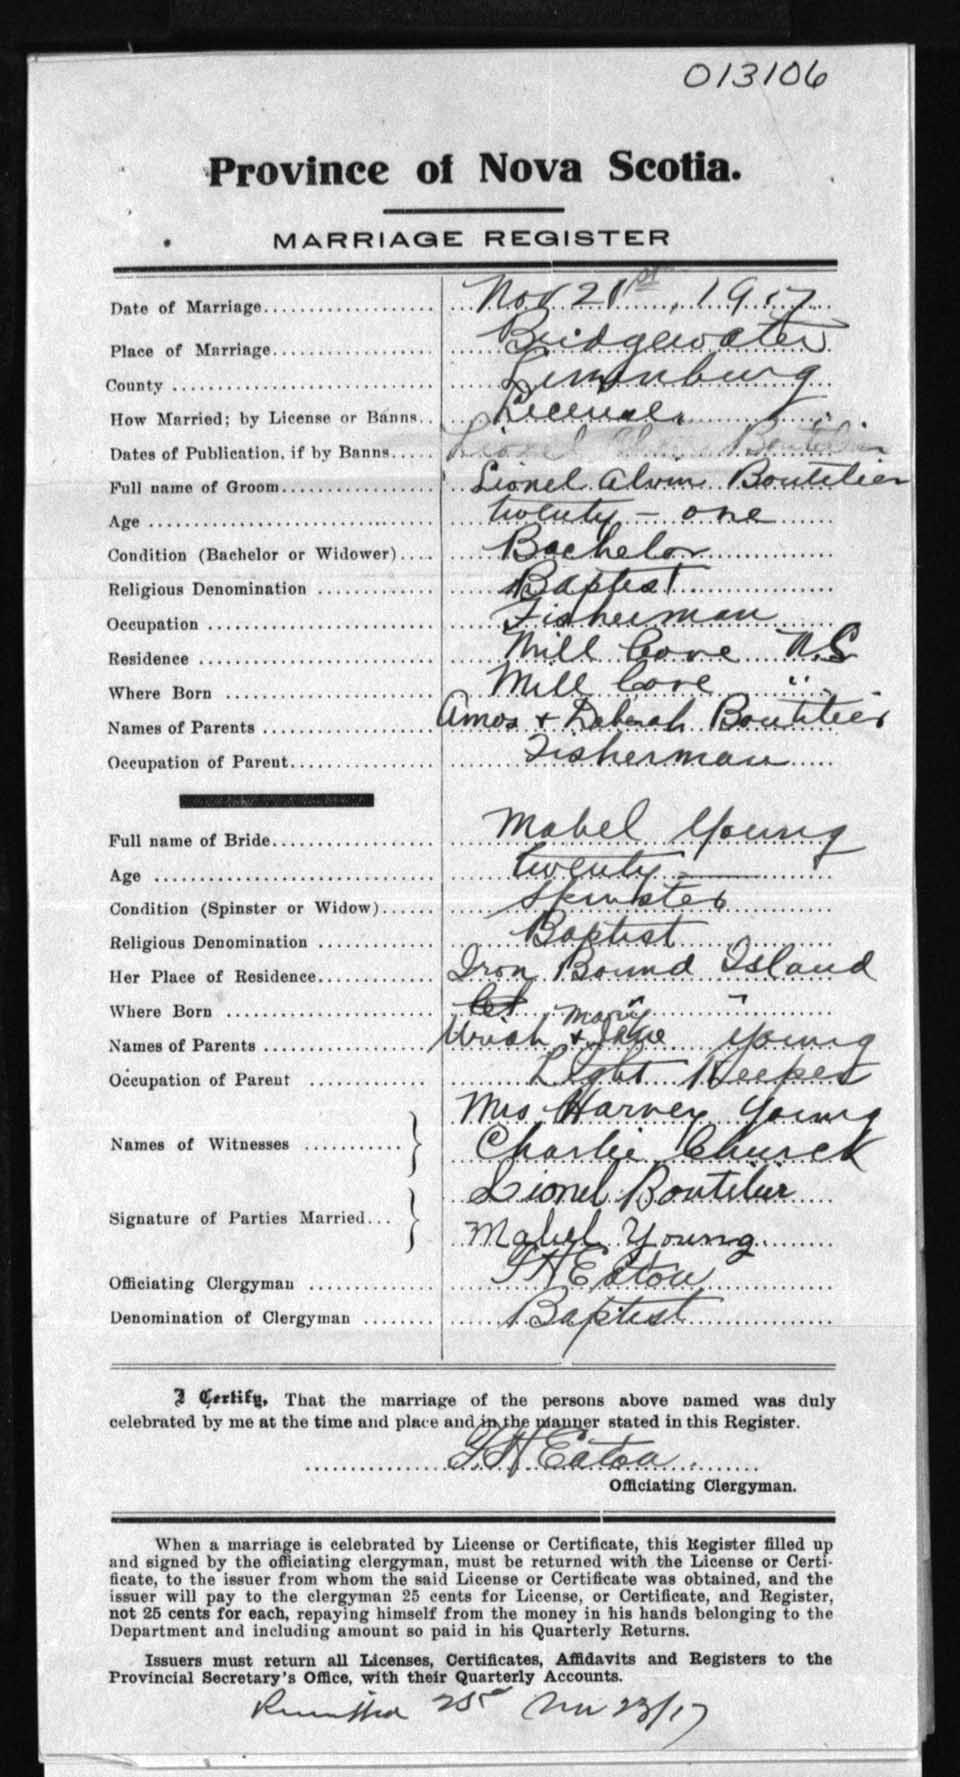 013106
Province of Nova Scotia.
MARRIAGE REGISTER
Date of Marriage Nov 21st, 1917
Place of Marriage Bridgewater
County Lunenburg
How Married; by License or Banns License.
Dates of Publication, if by Banns Lionel Alvin Boutilier
Full name of Groom Lionel Alvin Boutilier
Age twenty - one
Condition (Bachelor or Widower) Bachelor
Religious Denomination Baptist
Occupation Fisherman
Residence Mill Cove N.S
Where Born Mill Cove "
Names of Parents Amos + Deborah Boutilier
Occupation of Parent Fisherman
Full name of Bride Mabel Young
Age twenty
Condition (Spinster or Widow) Spinster
Religious Denomination Baptist
Her Place of Residence Iron Bound Island
Where Born " "
Names of Parents Uriah + Mary Young
Occupation of Parent Light Keeper
Names of Witnesses Mrs Harvey Young
Charlie Church
Signature of Parties Married Lionel Boutilier
Mabel Young
Officiating Clergyman G H Eaton
Denomination of Clergyman Baptist
I Certify, That the marriage of the persons above named was duly
celebrated by me at the time and place and in the manner stated in this Register.
G. H Eaton.
Officiating Clergyman.
When a marriage is celebrated by License or Certificate, this Register filled up
and signed by the officiating clergyman, must be returned with the License or Certi-
ficate, to the issuer from whom the said License or Certificate was obtained, and the
issuer will pay to the clergyman 25 cents for License, or Certificate, and Register,
not 25 cents for each, repaying himself from the money in his hands belonging to the
Department and including amount so paid in his Quarterly Returns.
Issuers must return all Licenses, Certificates, Affidavits and Registers to the
Provincial Secretary's Office, with their Quarterly Accounts.
Remitted 25c Nov 23/17